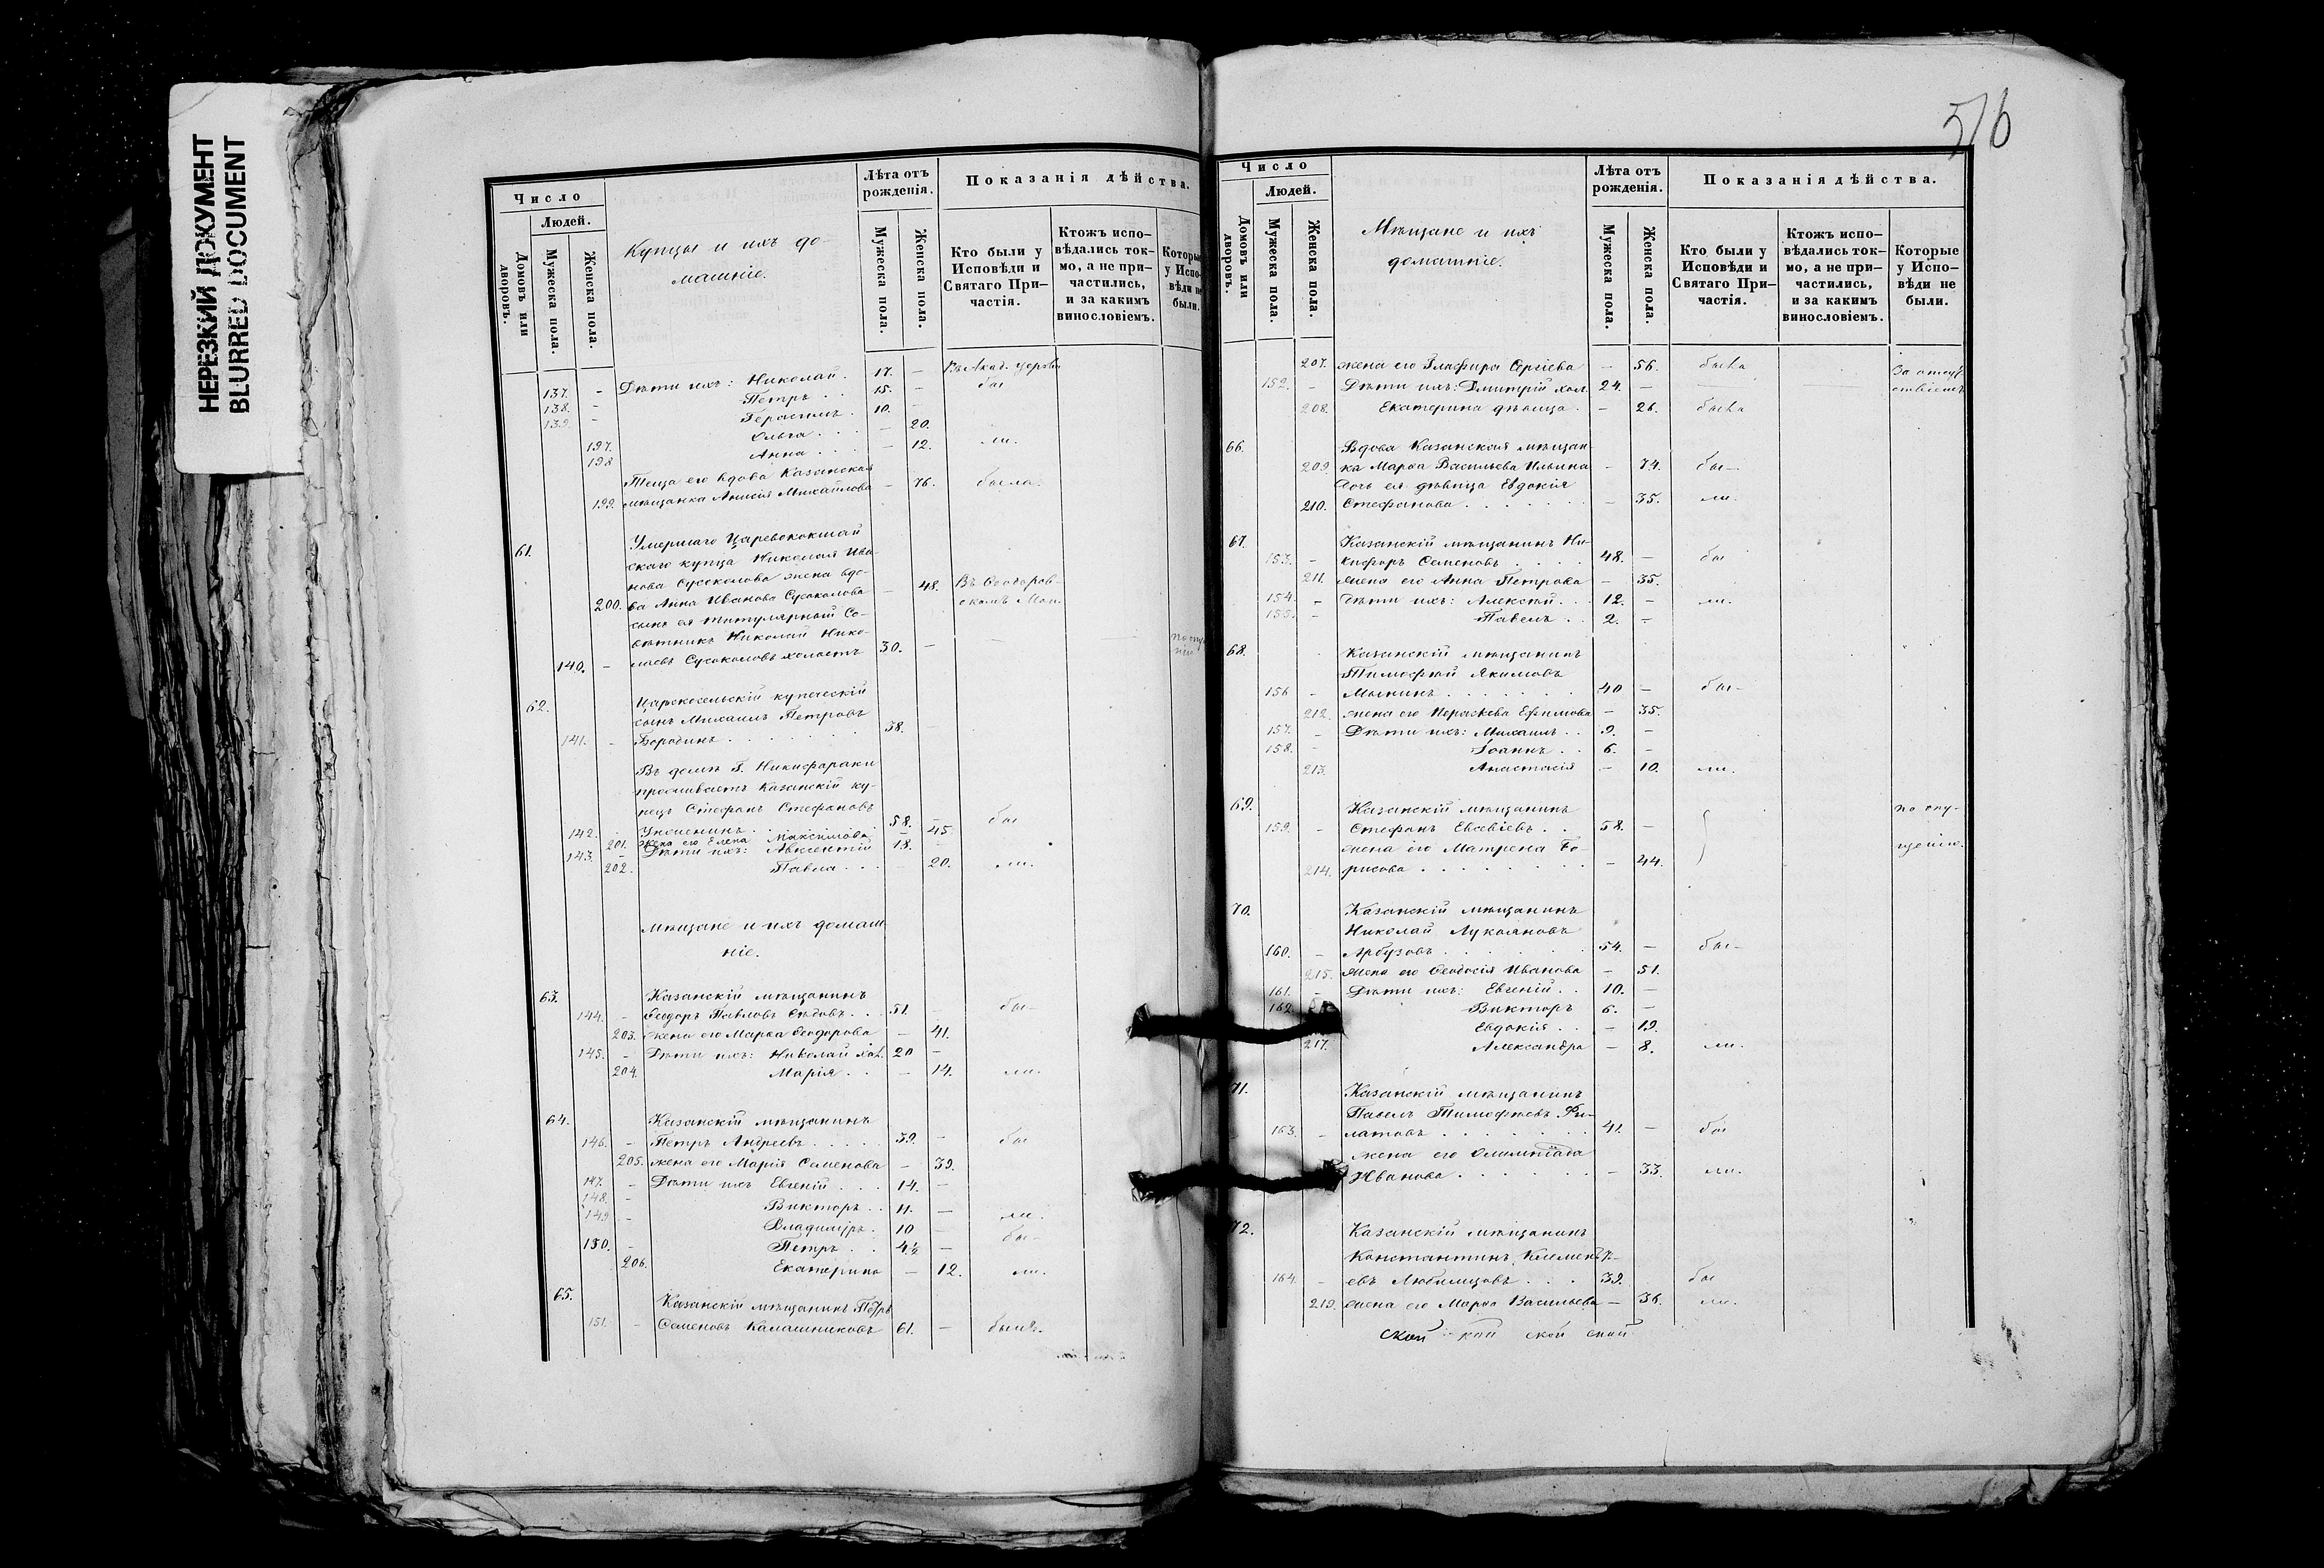 НЕРЕЗКИЙ ДОКУМЕНТ
BLURRED DOCUMENT
Число
Людей.
Домовъ или дворовъ.
Мужеска пола.
Женска пола.
Купцы и ихъ до-
машніе.
Лѣта отъ рожденія.
Мужеска пола.
Женска пола.
Показанія дѣйства.
Кто были у Исповѣди и Святаго При-частія.
Ктожъ испо-вѣдались ток-мо, а не при-частились, и за какимъ винословіемъ.
Которые у Испо-вѣди не были.
137. - Дѣти ихъ: Николай. 17. - Въ Акад. церкви
138. - Петръ . . 15. - бы
139. - Герасимъ . 10. -
197. Ольга . . . - 20.
198 Анна . . . - 12. ли.
Теща его вдова Казанская
199. мѣщанка Анисія Михайлова - 76. была.
61. Умершаго Царевококшай
скаго купца Николая Ива
нова Сусоколова жена вдо-
200. ва Анна Иванова Сусоколова - 48. Въ Ѳеодоров-
сынъ ея Титулярный Со- скомъ Мон.
вѣтникъ Николай Нико-
140. - лаевъ Сусоколовъ холостъ 30. - -
62. Царскосельскій купеческій
сынъ Михаилъ Петровъ
141. - Бородинъ . . . . . . . 38. -
Въ домѣ Г. Никифараки
проживаетъ Казанскій ку-
пецъ Стефанъ Стефановъ
142. . . . 58. - бы
201. жена его Елена Максимова - 45.
143. - Дѣти ихъ: Авксентій 18. -
202. Павла . . . - 20. ли.
Мѣщане и ихъ домаш
ніе.
63. Казанскій мѣщанинъ
144. - Ѳеодоръ Павловъ Сѣдовъ. . . 51. - бы-
203. жена его Марѳа Ѳеодорова - 41.
145. - Дѣти ихъ: Николай хол. 20 -
204. Марія . . - 14. ли.
64. Казанскій мѣщанинъ
146. - Петръ Андреевъ . . . . . 39. - бы
205. жена его Марія Семенова - 39.
147. - Дѣти ихъ Евгеній . . . 14. -
148. - Викторъ . . 11. -
149 - Владиміръ. 10 - ли.
150. - Петръ . . 4½ - бы-
206. Екатерина - 12. ли.
65. Казанскій мѣщанинъ Петръ
151. - Семеновъ Калашниковъ 61. - былъ.
576
Число
Людей.
Домовъ или дворовъ.
Мужеска пола.
Женска пола.
Мѣщане и ихъ
домашніе.
Лѣта отъ рожденія.
Мужеска пола.
Женска пола.
Показанія дѣйства.
Кто были у Исповѣди и Святаго При-частія.
Ктожъ испо-вѣдались ток-мо, а не при-частились, и за какимъ винословіемъ.
Которые у Испо-вѣди не были.
207. жена его Глафира Сергіева - 56. была За отсут
152. - Дѣти ихъ: Дмитрій хол. 24. - ствіемъ
208. Екатерина дѣвица. - 26. была
66. Вдова Казанская мѣщан-
209. ка Марѳа Васильева Ильина - 74. бы-
Дочь ея дѣвица Евдокія
210. Стефанова . . . . . . . - 35. ли.
67. Казанскій мѣщанинъ Ни-
153. - кифоръ Семеновъ . . . . 48. - бы
211. жена его Анна Петрова - 35.
154. - Дѣти ихъ: Алексѣй. . . 12. - ли.
155. - Павелъ . . 2. -
68. Казанскій мѣщанинъ
Тимофѣй Якимовъ
156 - . . . . . . . 40 - бы-
212. жена его Параскева Ефимова - 35.
157. - Дѣти ихъ: Михаилъ . . 9. -
158. - Іоаннъ . . 6. -
213. Анастасія - 10. ли.
69. Казанскій мѣщанинъ по опу-
159. - Стефанъ Евсевіевъ . . 58. -
жена его Матрена Бо- щенію.
214. рисова . . . . . . . . - 44.
70. Казанскій мѣщанинъ
Николай Лукояновъ
160. - Арбузовъ . . . . . . . 54. - бы-
215. жена его Ѳеодосія Иванова - 51.
161. - Дѣти ихъ: Евгеній . . 10. -
162. Викторъ 6. -
Евдокія . . - 19.
217. Александра - 8. ли.
71. Казанскій мѣщанинъ
Павелъ Тимофѣевъ Фи-
163. - латовъ . . . . . . . 41. - бы
жена его Олимпіада
Иванова . . . . . . - 33. ли.
72. Казанскій мѣщанинъ
Константинъ Климентъ-
164. - евъ Любимцовъ . . . 39. бы
219. жена его Марѳа Васильева - 36. ли.
ской кой ской ской